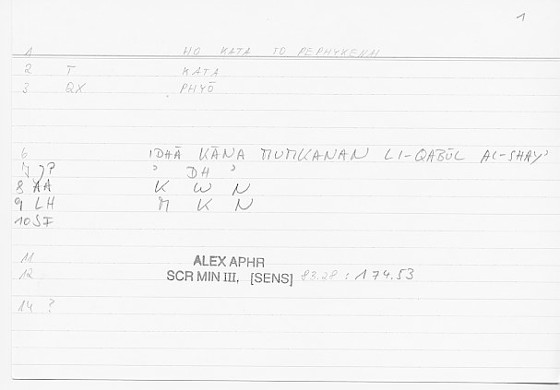 1
1 HO KATA TO PEPHYKENAI
2 T KATA
3 QX PHYŌ
6 IDHĀ KĀNA MUMKANAN LI-QABŪL AL-SHAYʾ
7 ʾ DH ʾ
8 AA K W N
9 LH M K N
10 SF
11
12
ALEX APHR
SCR MIN III, [SENS] 83.28 : 174.53
14 ?